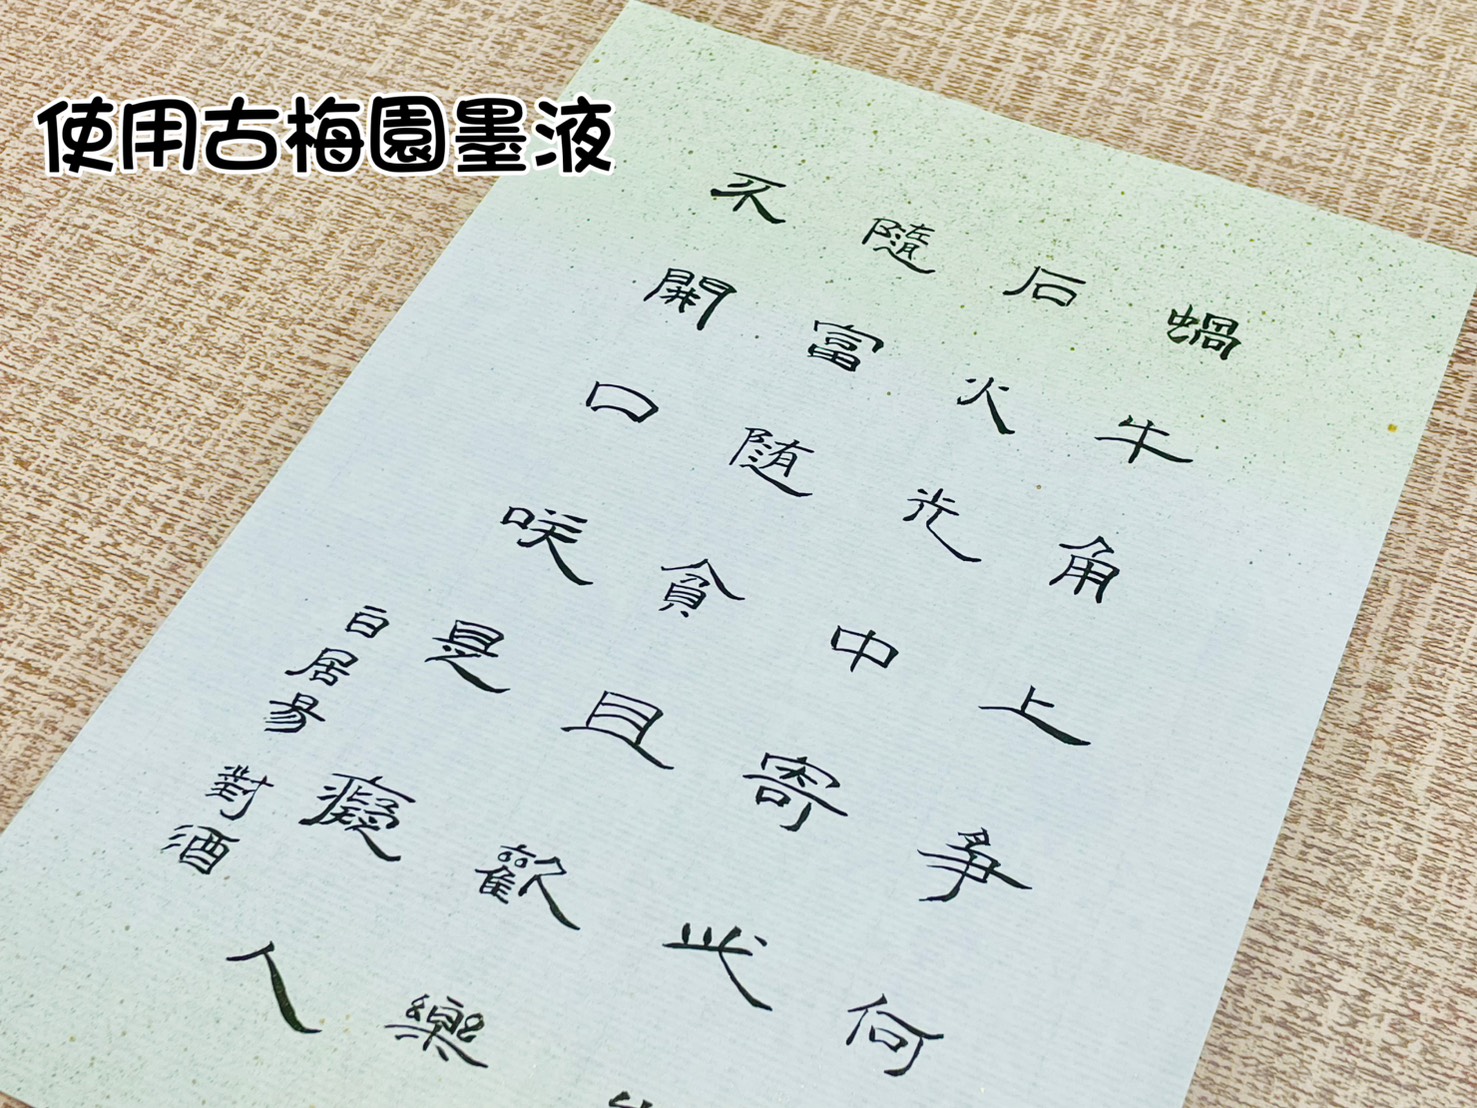 使用古梅園墨液
蝸牛角上爭何
石火光中寄此
隨富随貧且歡樂
不開口咲是癡人
白居易 對酒